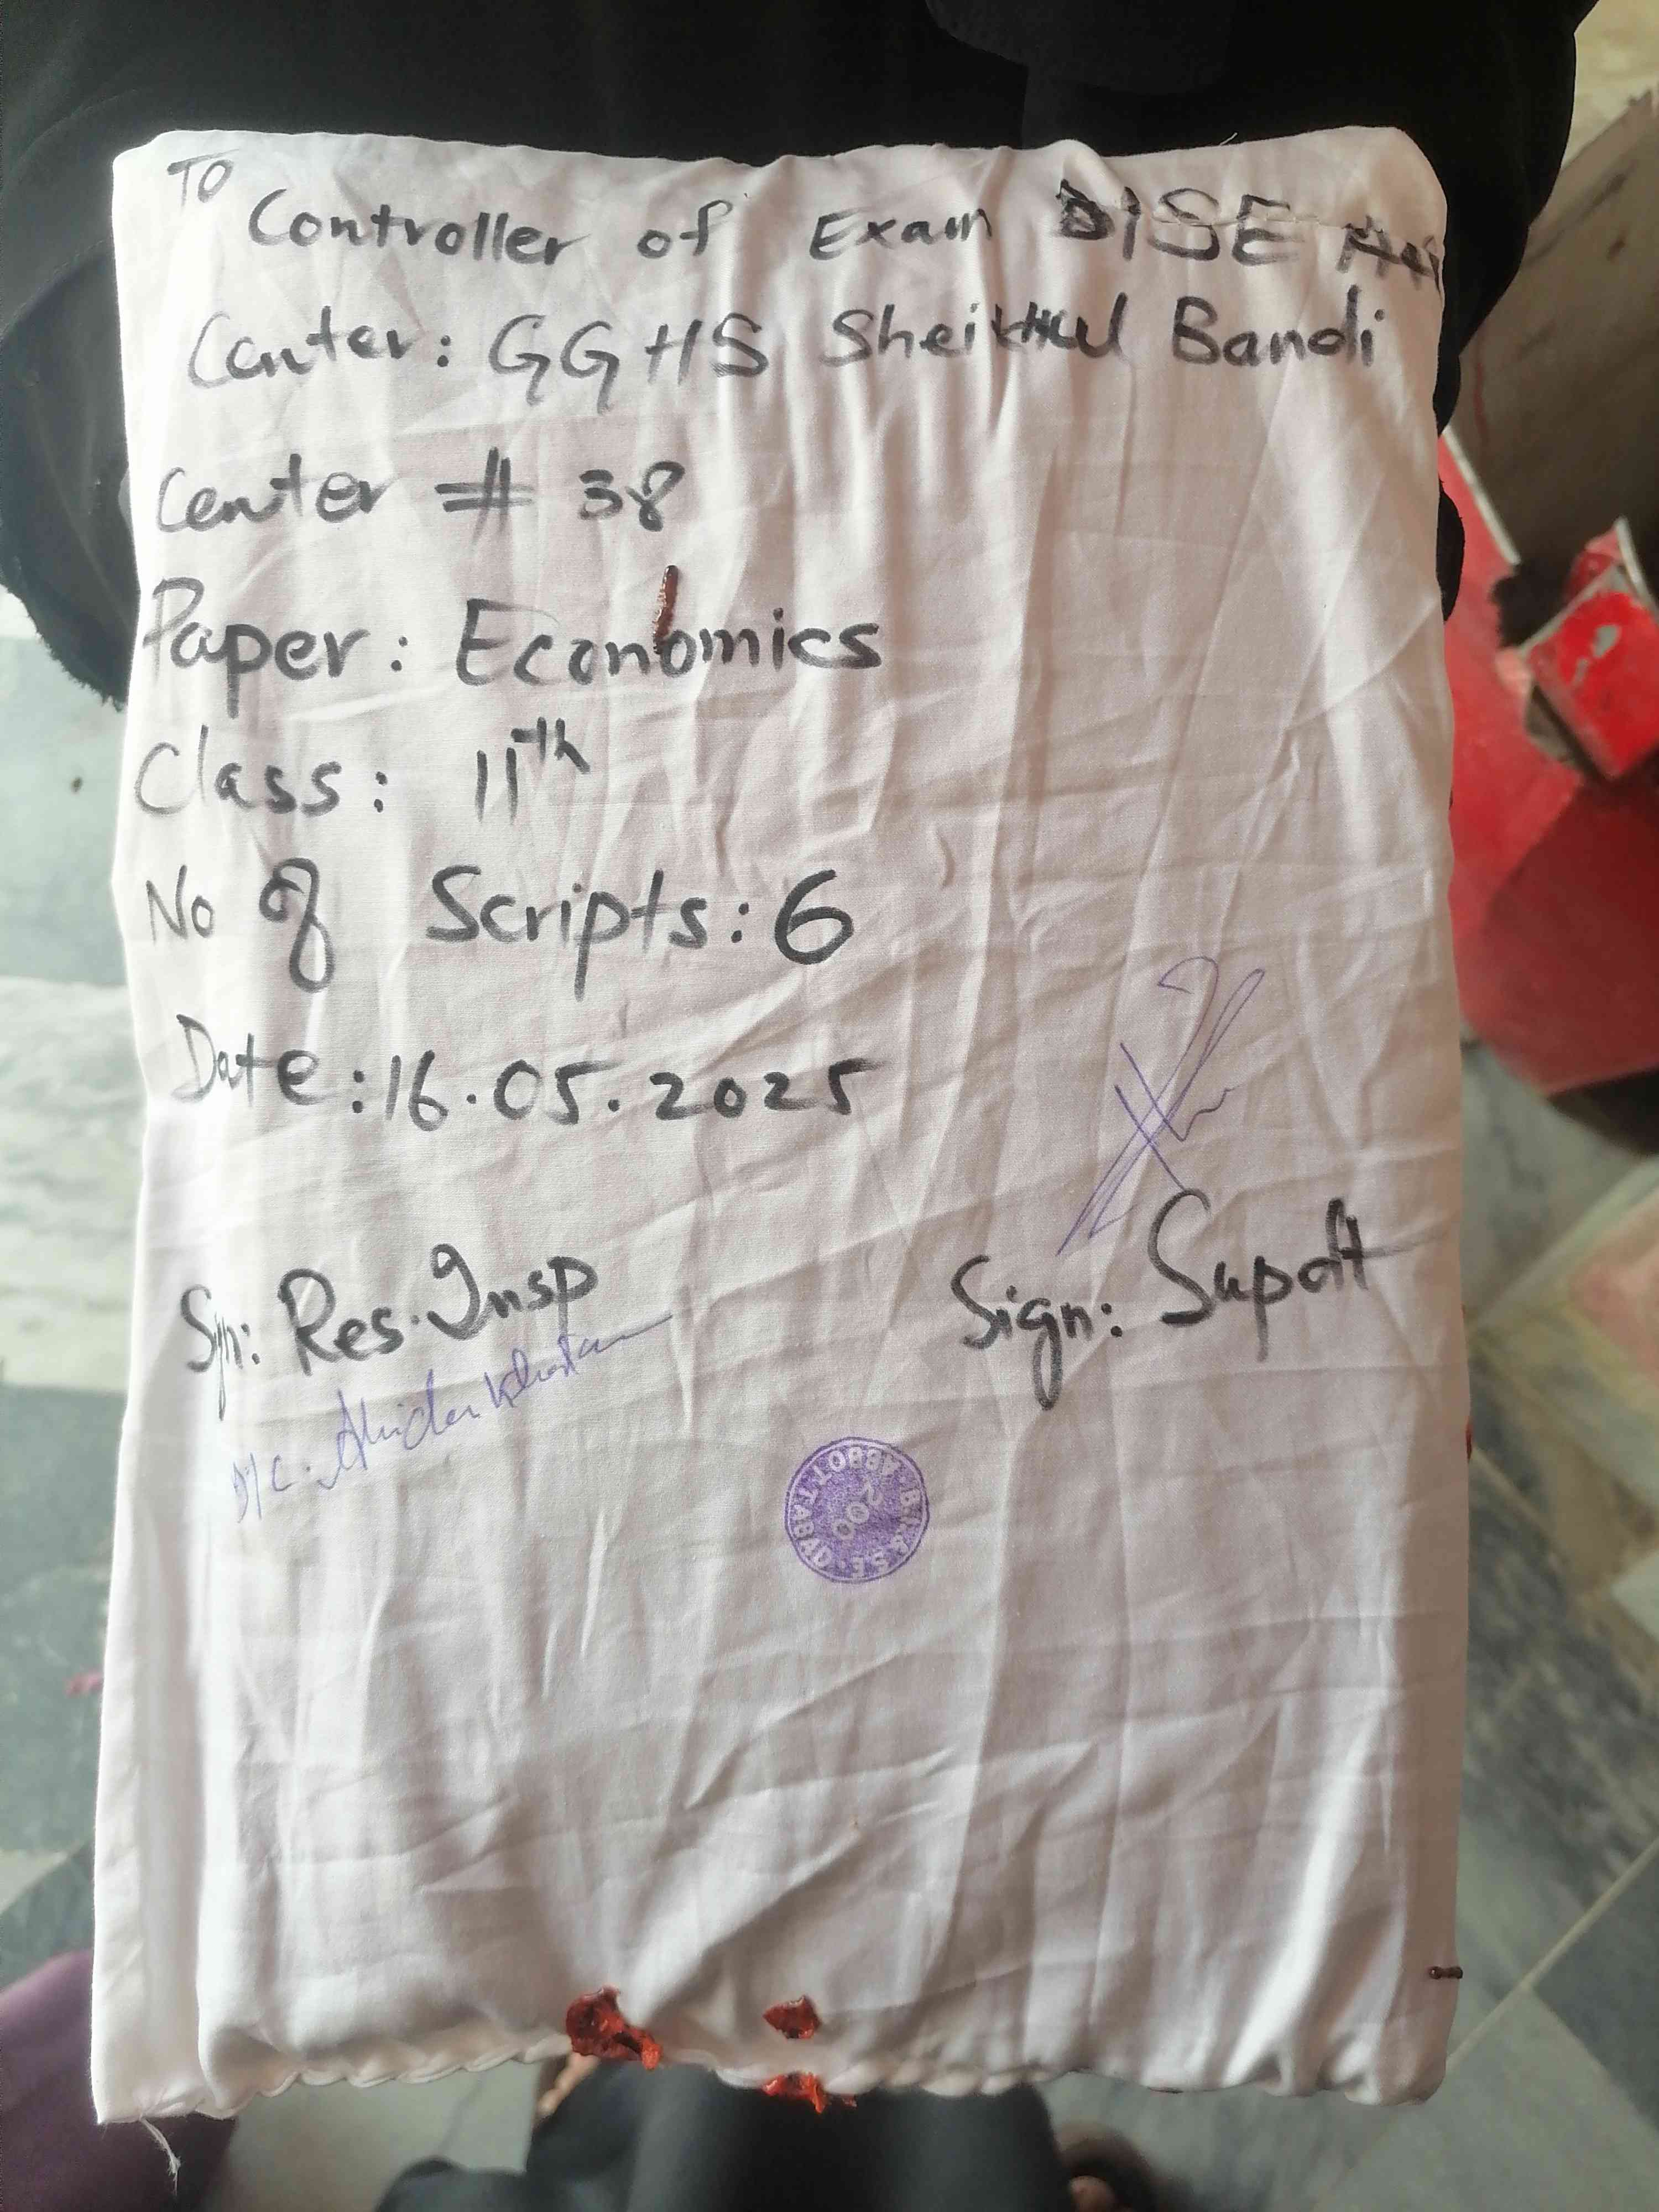 TO
Controller of Exam BISE
Center: GGHS Sheikhul Bandi
Center # 38
Paper: Economics
Class: 11th
No of Scripts: 6
Date: 16.05.2025
Sign: Res. Insp
Sign: Supdt
B.I.&S.E. ABBOTTABAD
200